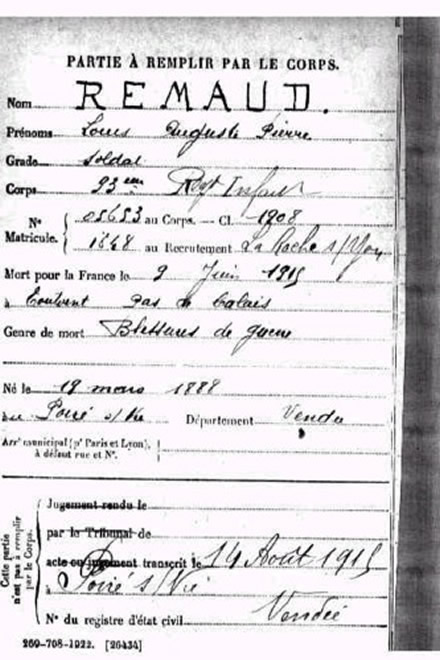 PARTIE À REMPLIR PAR LE CORPS.
Nom REMAUD.
Prénoms Louis Auguste Pierre
Grade soldat
Corps 93ème Regt Infant
Nº Matricule. 05653 au Corps. — Cl. 1908
1848 au Recrutement La Roche s/Yon
Mort pour la France le 9 Juin 1915
à Pas de Calais
Genre de mort Blessures de guerre
Né le 19 mars 1888
au Poiré s/Vie Département Vendée
Arrᵗ municipal (pʳ Paris et Lyon),
à défaut rue et Nº.
Cette partie n'est pas à remplir par le Corps.
Jugement rendu le
par le Tribunal de
acte ou jugement transcrit le 14 Août 1915
à Poiré s/Vie
Vendée
Nº du registre d'état civil
269-708-1922. [26434]